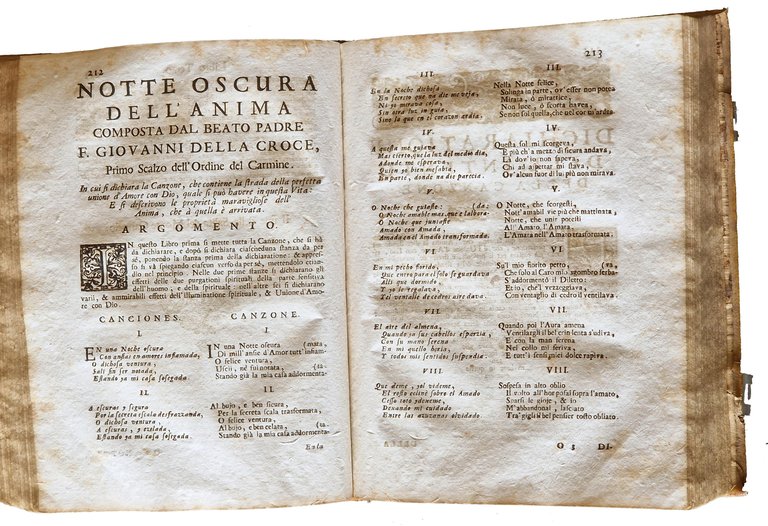 212
NOTTE OSCURA
DELL'ANIMA
COMPOSTA DAL BEATO PADRE
F. GIOVANNI DELLA CROCE,
Primo Scalzo dell'Ordine del Carmine.
In cui si dichiara la Canzone, che contiene la strada della perfetta
unione d'Amore con Dio, quale si può havere in questa Vita:
E si descrivono le proprietà maravigliose dell'
Anima, che à quella è arrivata.
ARGOMENTO.
IN questo Libro prima si mette tutta la Canzone, che si hà
da dichiarare, e dopò si dichiara ciascheduna stanza da per
sè, ponendo la stanza prima della dichiaratione: & appres-
so si và spiegando ciascun verso da per sè, mettendolo etian-
dio nel principio. Nelle due prime stanze si dichiarano gli
effetti delle due purgationi spirituali della parte sensitiva
dell'huomo, e della spirituale: nell'altre sei si dichiarano
varii, & ammirabili effetti dell'illuminatione spirituale, & Unione d'Amo-
re con Dio.
CANCIONES.
I.
EN una Noche oscura
Con ansias en amores inflamada,
O dichosa ventura,
Salì sin ser notada,
Estando ya mi casa sosegada
II.
A escuras y segura
Por la secreta escala desfraxzanda,
O dichosa ventura,
A escuras, y enzelada,
Estando ya mi casa sosegada.
CANZONE.
I.
IN una Notte oscura (mata,
Di mill'ansie d'Amor tutt'infiam-
O felice ventura,
Uscii, nè fui notata, (ta.
Stando già la mia casa addormenta-
II.
Al bujo, e ben sicura,
Per la secreta scala trasformata,
O felice ventura,
Al bujo, e ben celata, (ta.
Stando già la mia casa addormenta-
Enla
213
III.
En la Noche dichosa
En secreto que na die me veya,
Ni yo mirava cosa,
Sin otra luz ni guia,
Sino la que en el corazon ardia.
IV.
A questa me guiava
Mas cierto, que la luz del medio dia,
Adonde me esperava,
Quien yo bien me sabia,
En parte, donde na die parecia.
V.
O Noche che guiaste: (da:
O Noche amable mas, que l'albora-
O Noche que juntaste
Amado con Amada,
Amada en el Amado transformada.
VI.
En mi pecho florido,
Que entero para el solo se guardava
Alli que dormido,
Y yo le regalava,
Y el ventalle de cedros aire dava.
VII.
El aire del almena,
Quando ya sus cabellos esparzia,
Con su mano serena
En mi cuello heria,
Y todos mis sentidos suspendia.
VIII.
Que deme, y olvideme,
El rostro recliné sobre el Amado
Cesso todo, y deueme,
Dexando mi cuidado
Entre las azuzenas olvidado.
III.
Nella Notte felice,
Solinga in parte, ov'esser non potea
Mirata, ò miratrice,
Non luce, ò scorta havea,
Se non sol quella, che nel cor m'ardea.
IV.
Questa sol mi scorgeva,
E più ch'a mezzo dì sicura andava,
Là dov'io non sapeva,
Chi ad aspettar mi stava,
Ov'alcun fuor di lui più non mirava.
V.
O Notte, che scorgesti,
Nott'amabil vie più che mattinata,
Notte, che unir potesti
Al'Amato, l'Amata,
L'Amata nell'Amato trasformata.
VI.
Su'l mio fiorito petto, (va,
Che solo al Caro mio sgombro serba-
S'addormentò il Diletto:
Et io, che'l vezzeggiava,
Con ventaglio di cedro il ventilava.
VII.
Quando poi l'Aura amena
Ventilargli il bel crin lenta s'udiva,
E con la man serena
Nel collo mi feriva,
E tutt'i sensi miei dolce rapiva.
VIII.
Sospesa in alto oblio
Il volto all'hor posai sopra l'amato,
Starsi le gioje, & io
M'abbandonai, lasciato
Tra' gigli il bel pensier tosto obliato.
O 3 DI-